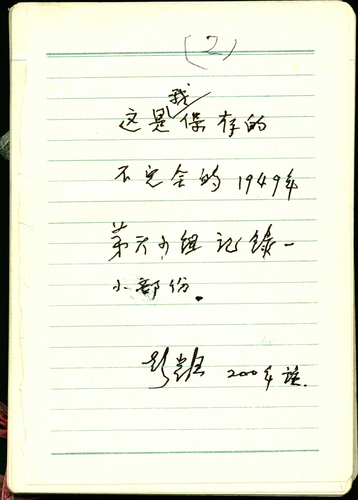 (2)
这是我保存的
不完全的1949年
第六小组记錄一
小部份。
年